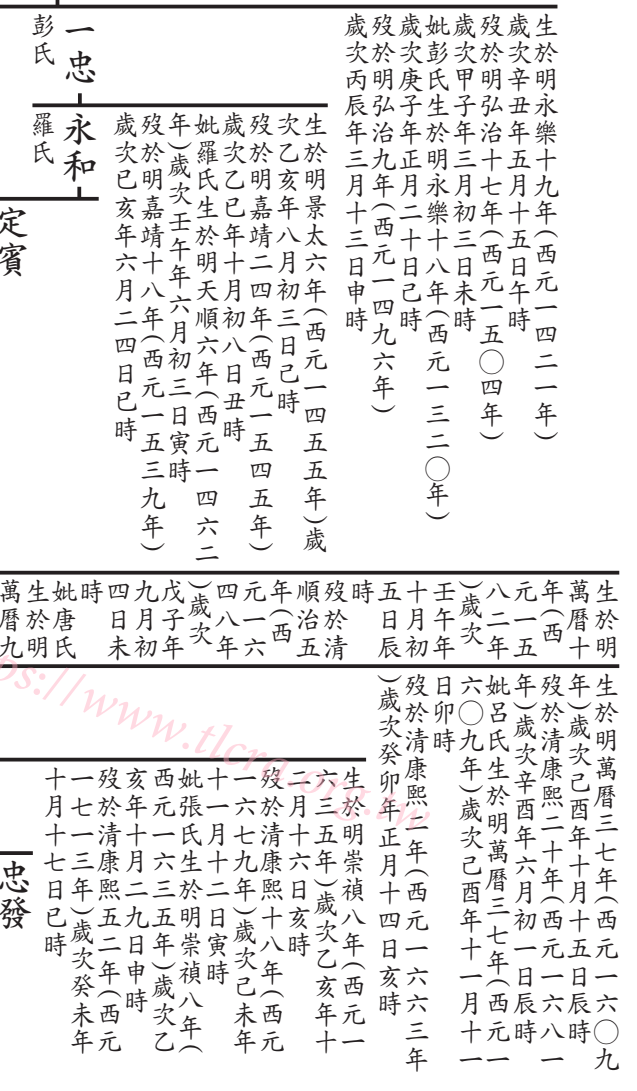 生於明永樂十九年(西元一四二一年)
歲次辛丑年五月十五日午時
歿於明弘治十七年(西元一五〇四年)
歲次甲子年三月初三日未時
妣彭氏生於明永樂十八年(西元一三二〇年)
歲次庚子年正月二十日己時
歿於明弘治九年(西元一四九六年)
歲次丙辰年三月十三日申時
一忠
彭氏
生於明景太六年(西元一四五五年)歲
次乙亥年八月初三日己時
歿於明嘉靖二四年(西元一五四五年)
歲次乙巳年十月初八日丑時
妣羅氏生於明天順六年(西元一四六二
年)歲次壬午年六月初三日寅時
歿於明嘉靖十八年(西元一五三九年)
歲次己亥年六月二四日巳時
永和
羅氏
定賓
生於明
萬曆十
年(西
元一五
八二年
)歲次
壬午年
十月初
五日辰
時
歿於清
順治五
年(西
元一六
四八年
)歲次
戊子年
九月初
四日未
時
妣唐氏
生於明
萬曆九
生於明萬曆三七年(西元一六〇九
年)歲次己酉年十月十五日辰時
歿於清康熙二十年(西元一六八一
年)歲次辛酉年六月初一日辰時
妣呂氏生於明萬曆三七年(西元一
六〇九年)歲次己酉年十一月十一
日卯時
歿於清康熙二年(西元一六六三年
)歲次癸卯年正月十四日亥時
生於明崇禎八年(西元一
六三五年)歲次乙亥年十
二月十六日亥時
歿於清康熙十八年(西元
一六七九年)歲次己未年
十一月十二日寅時
妣張氏生於明崇禎八年(
西元一六三五年)歲次乙
亥年十月二九日申時
歿於清康熙五二年(西元
一七一三年)歲次癸未年
十月十七日巳時
忠發
ps://www.tlcra.org.tw